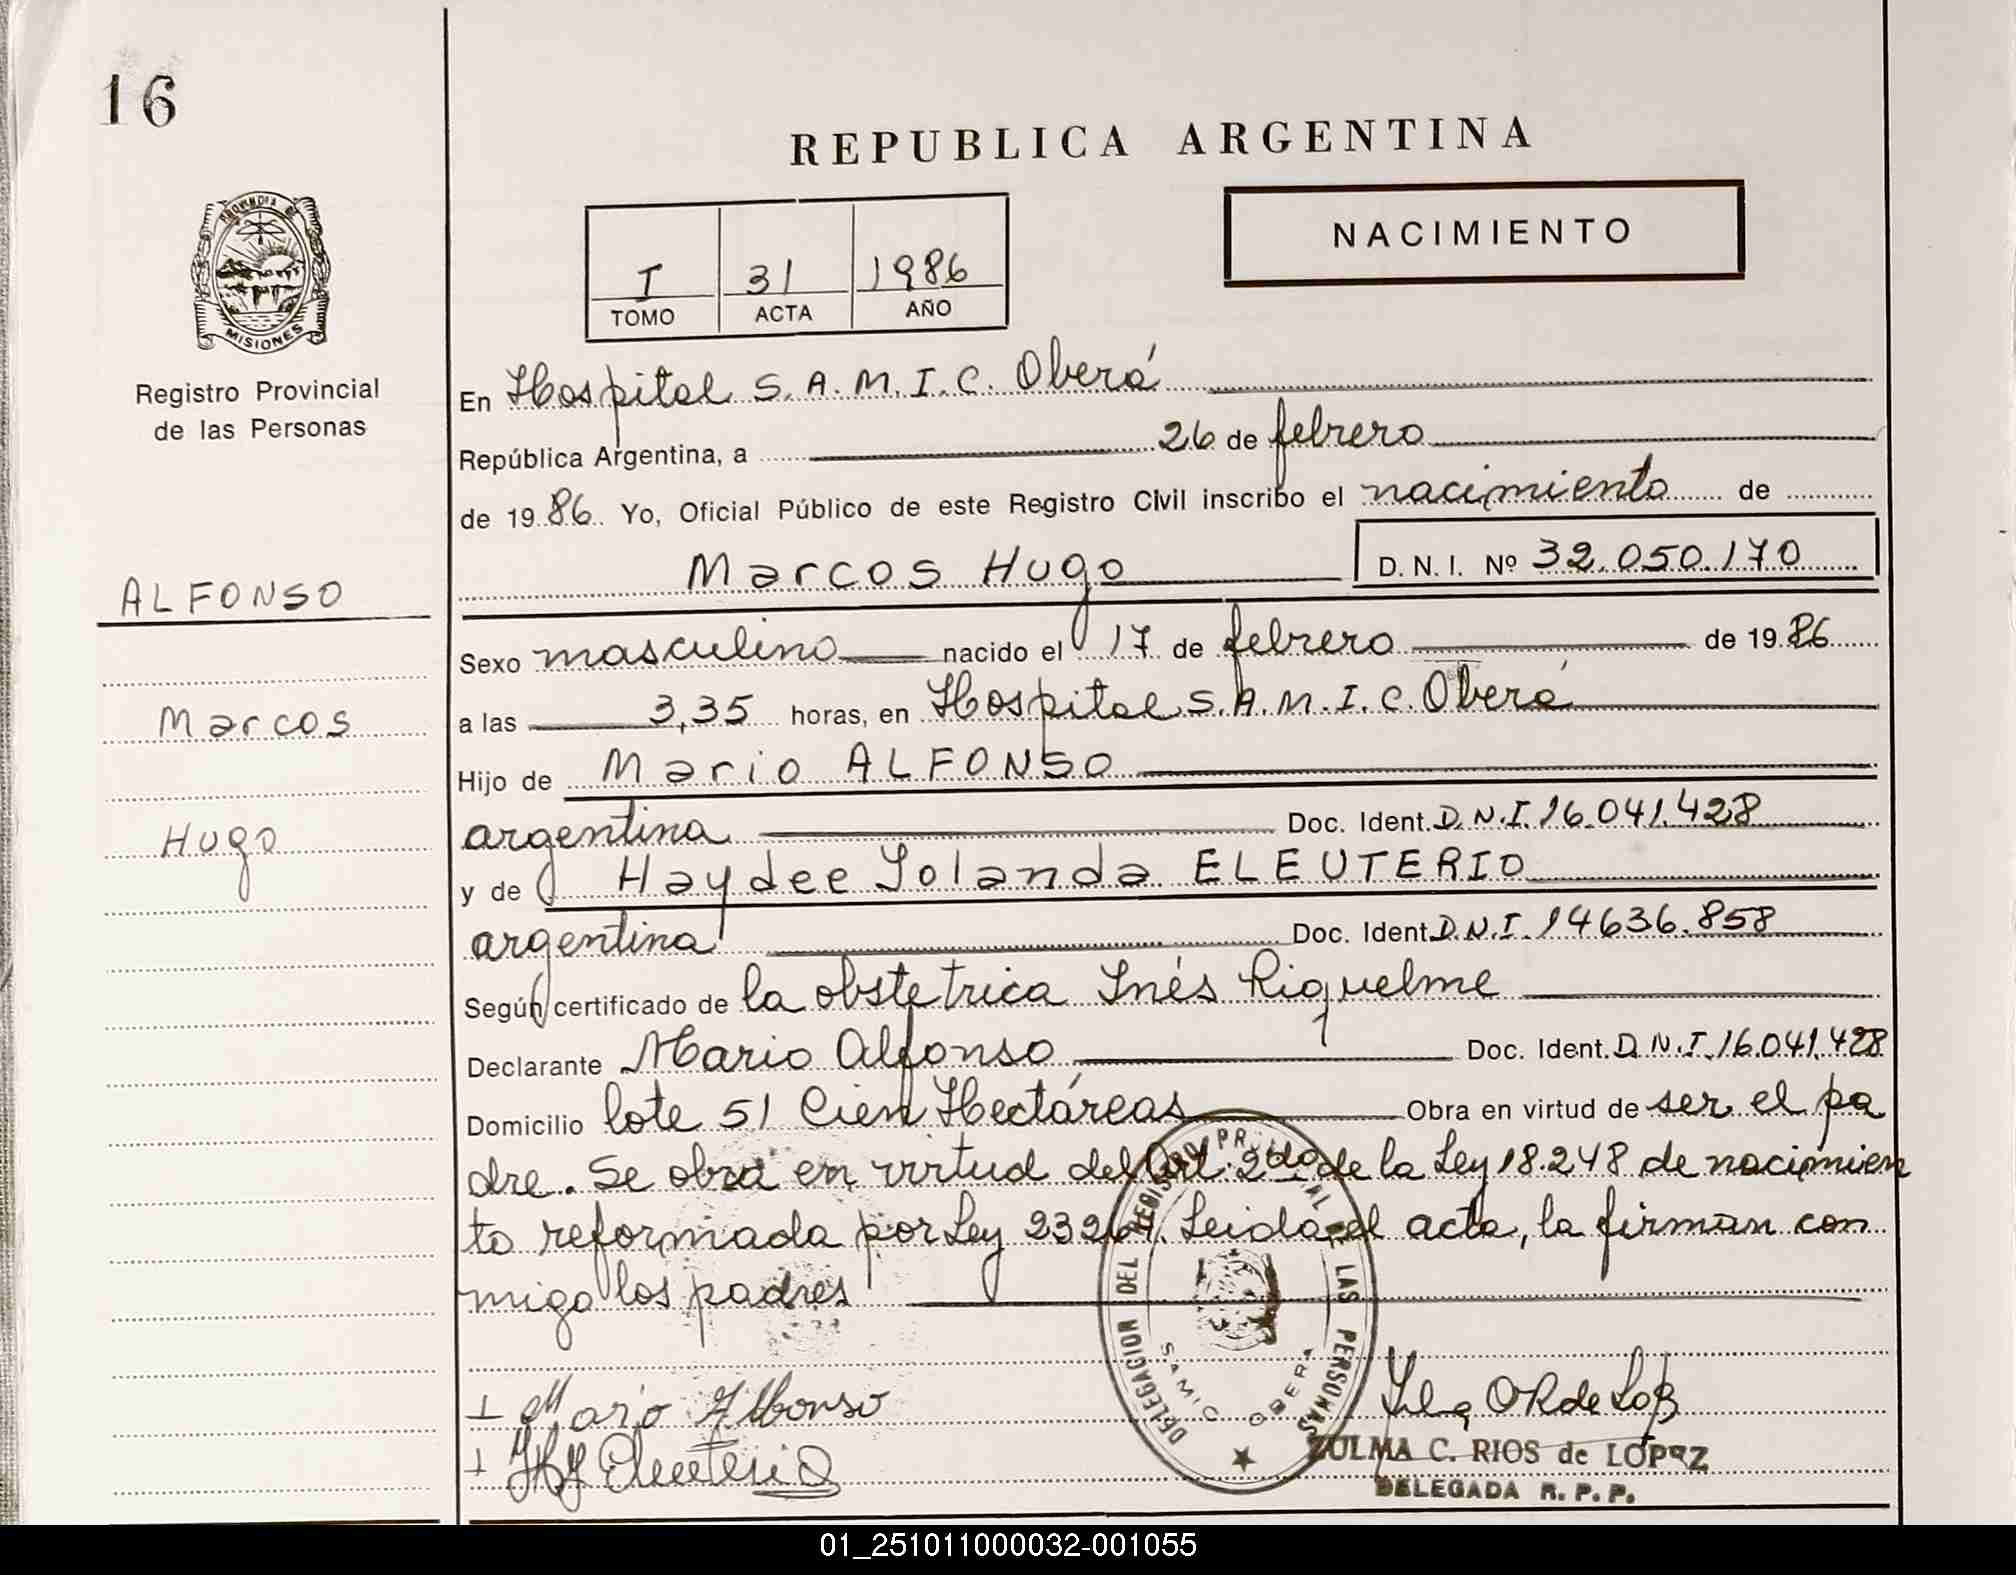 16
REPUBLICA ARGENTINA
PROVINCIA DE
MISIONES
Registro Provincial
de las Personas
I 31 1986
TOMO ACTA AÑO
NACIMIENTO
En Hospital S.A.M.I.C. Oberá
República Argentina, a 26 de febrero
de 1986. Yo, Oficial Público de este Registro Civil inscribo el nacimiento de
Marcos Hugo D.N.I. Nº 32.050.170
ALFONSO
Marcos
Hugo
Sexo masculino nacido el 17 de febrero de 1986
a las 3,35 horas, en Hospital S.A.M.I.C. Oberá
Hijo de Mario ALFONSO
argentina Doc. Ident. D.N.I. 16.041.428
y de Haydee Yolanda ELEUTERIO
argentina Doc. Ident. D.N.I. 14636.858
Según certificado de la obstetrica Inés Riquelme
Declarante Mario Alfonso Doc. Ident. D.N.I. 16.041.428
Domicilio lote 51 Cien Hectáreas Obra en virtud de ser el pa
dre. Se obra en virtud del Art. 2do de la Ley 18.248 de nacimien
to reformada por Ley 23264. Leida el acta, la firman con
migo los padres
DELEGACION DEL REGISTRO PROVINCIAL DE LAS PERSONAS
SAMIC OBERA
Mario Alfonso
HY Eleuterio
ZULMA C. RIOS de LOPEZ
DELEGADA R. P. P.
01_251011000032-001055